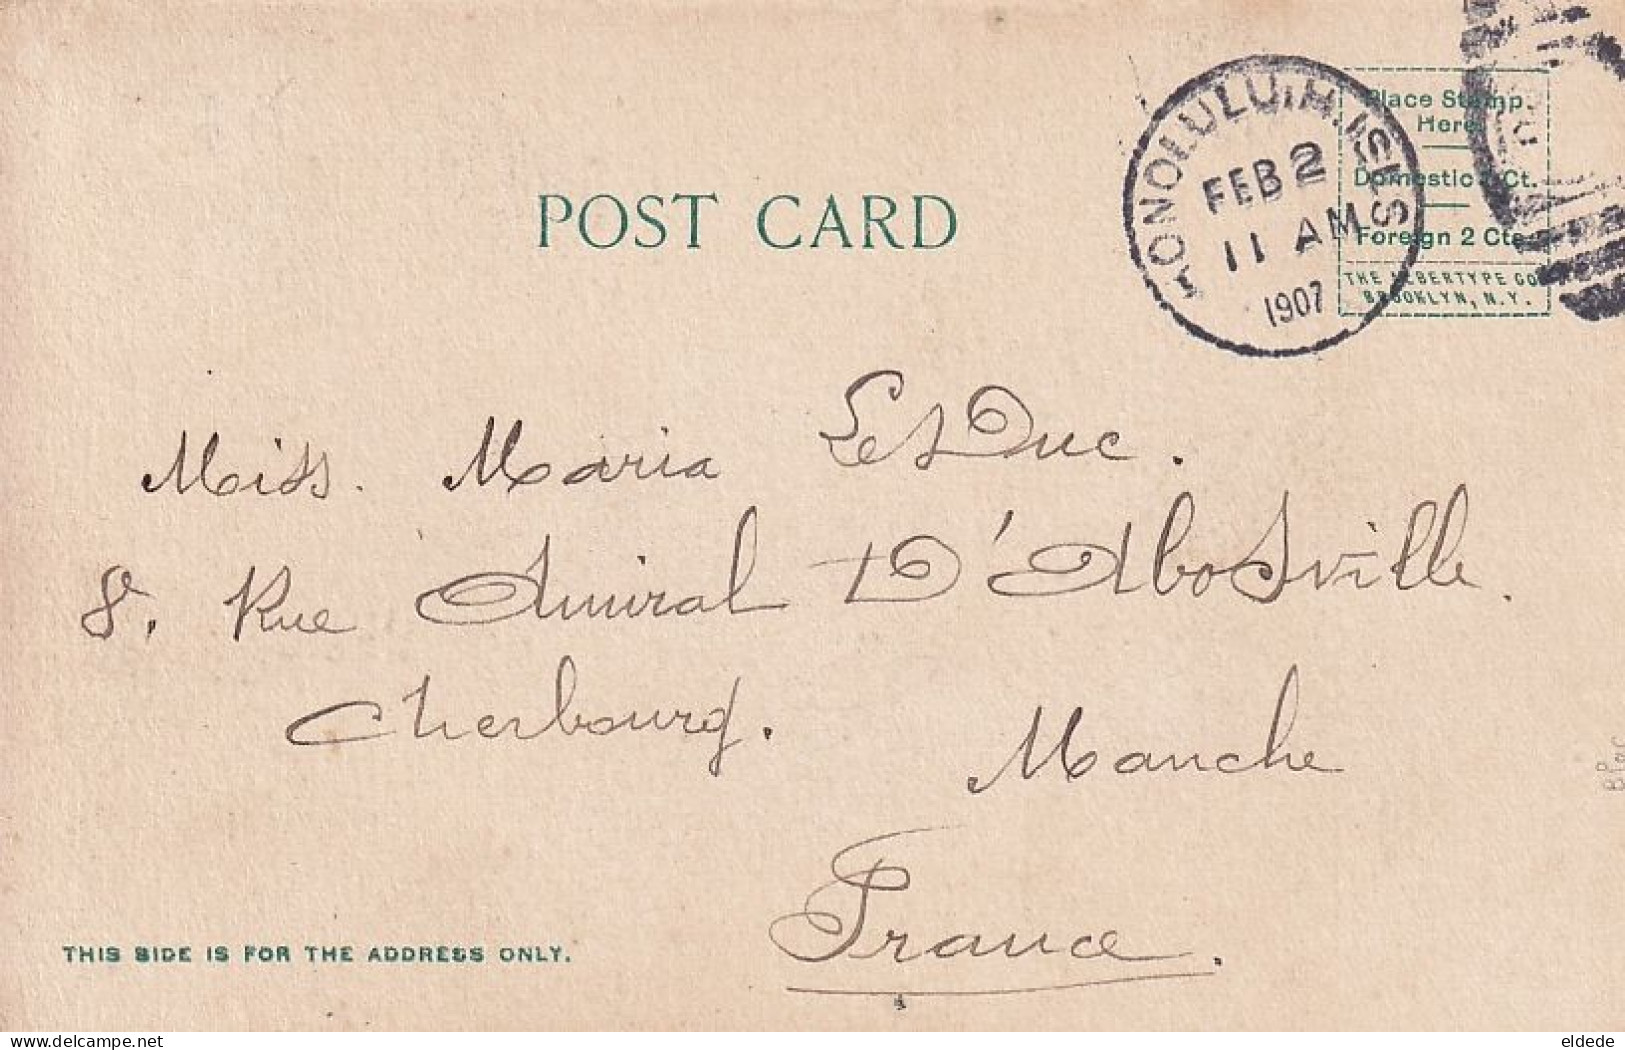 HONOLULU, H. ISLS
FEB 2
11 AM
1907
Place Stamp
Here
Domestic 1 Ct.
Foreign 2 Cts.
THE ALBERTYPE CO.
BROOKLYN, N.Y.
POST CARD
Miss. Maria LesDuc.
8. Rue Amiral D'Abosville.
Cherbourg. Manche
France.
THIS SIDE IS FOR THE ADDRESS ONLY.
delcampe.net
eldede